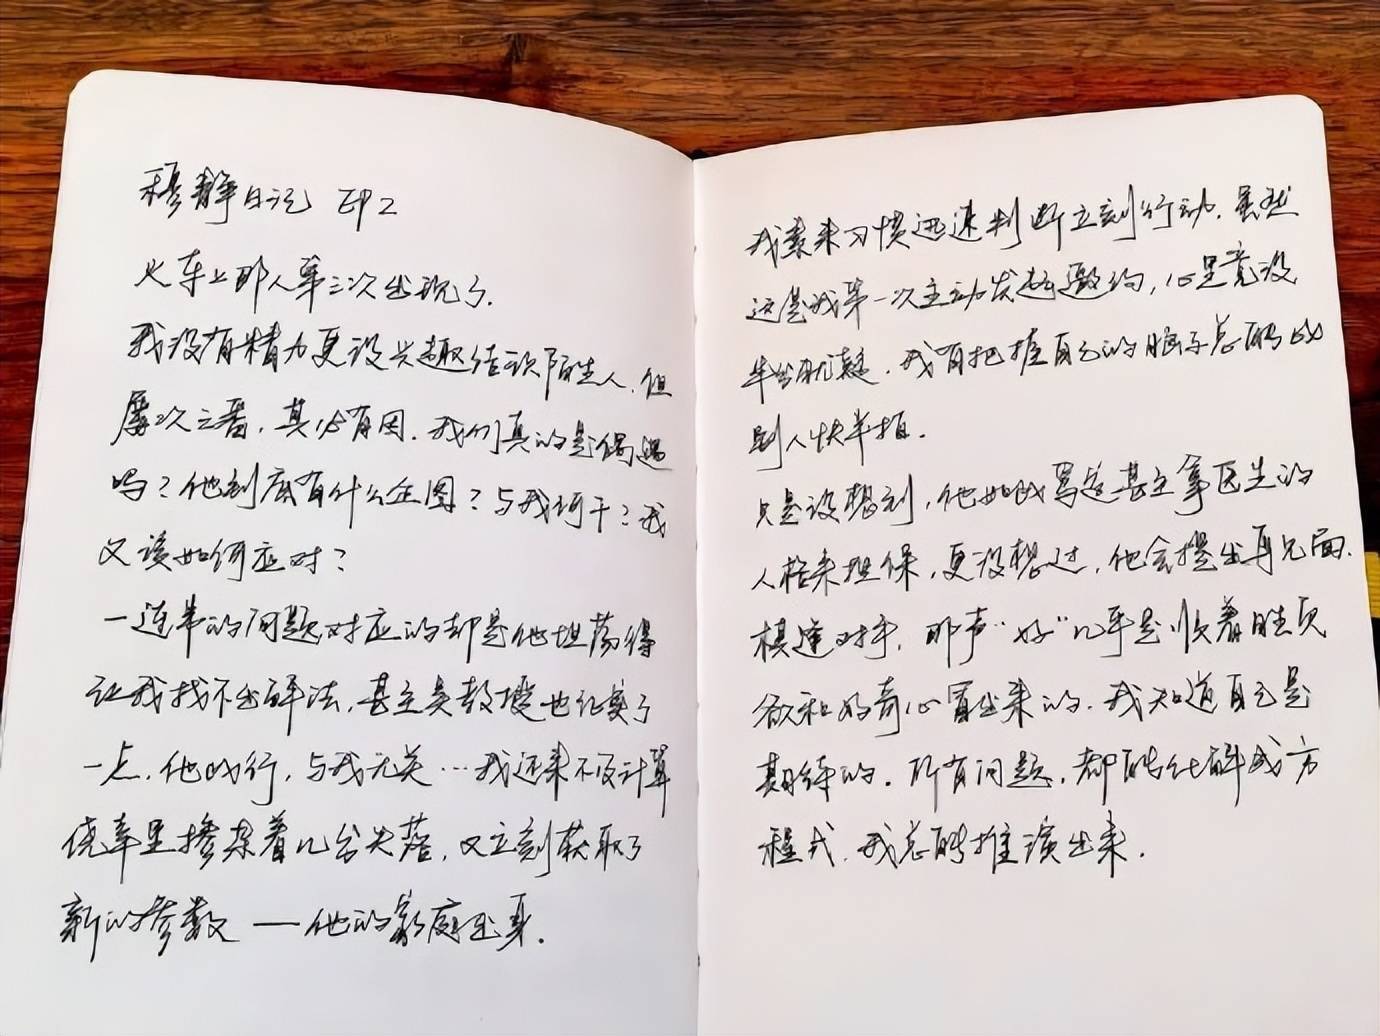 穆静日记 EP2
火车上那人第三次出现了.
我没有精力更没兴趣结识陌生人.但
屡次三番,其必有因.我们真的是偶遇
吗?他到底有什么企图?与我何干?我
又该如何应对?
一连串的问题对应的却是他坦荡得
让我找不出解法,甚至吴教授也证实了
一点.他此行,与我无关…我还来不及计算
侥幸里掺杂着几台失落,又立刻获取了
新的参数——他的家庭出身.
我素来习惯迅速判断立刻行动.虽然
这是我第一次主动发起邀约,心里竟没
半分犹疑.我有把握自己的脑子总能比
别人快半拍.
只是没想到,他如此笃定甚至拿医生的
人格来担保,更没想过,他会提出再见面.
棋逢对手,那声"好"几乎是顺着胜负
欲和好奇心冒出来的.我知道自己是
期待的.所有问题,都能化解成方
程式.我总能推演出来.